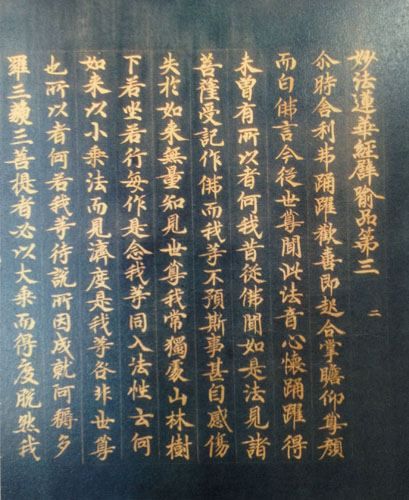 妙法蓮華經譬喻品第三 二
尒時舍利弗踊躍歡喜即起合掌瞻仰尊顏
而白佛言今從世尊聞此法音心懷踊躍得
未曾有所以者何我昔從佛聞如是法見諸
菩薩受記作佛而我等不預斯事甚自感傷
失於如来無量知見世尊我常獨處山林樹
下若坐若行每作是念我等同入法性云何
如来以小乘法而見濟度是我等咎非世尊
也所以者何若我等待說所因成就阿耨多
羅三藐三菩提者必以大乘而得度脫然我